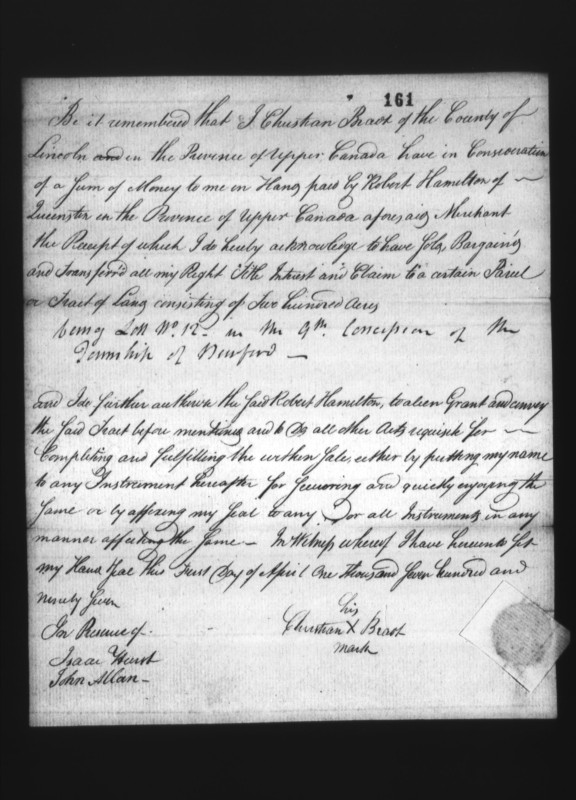 161
Be it remembered that I Christian Bradt of the County of
Lincoln and in the Province of Upper Canada have in Consideration
of a Sum of Money to me in Hand paid by Robert Hamilton of
Queenston in the Province of Upper Canada aforesaid Merchant
the Receipt of which I do hereby acknowledge to have Sold, Bargain'd
and Transferr'd all my Right Title Interest and Claim to a certain Parcel
or Tract of Land consisting of Two hundred Acres
being Lott No. 12 in the 9th Concession of the
Township of Burford
and I do further authorise the Said Robert Hamilton, to alien Grant and convey
the Said Tract before mentioned and to Do all other Acts requisite for
Completing and fulfilling the within Sale, either by putting my name
to any Instrument hereafter for Securing and quickly enjoying the
Same or by affixing my Seal to any or all Instruments in any
manner affecting the Same - In Witness whereof I have hereunto Set
my Hand & Seal this First Day of April One thousand Seven hundred and
ninety Seven
In Presence of his
Christian X Bradt
mark
Isaac
John Allan